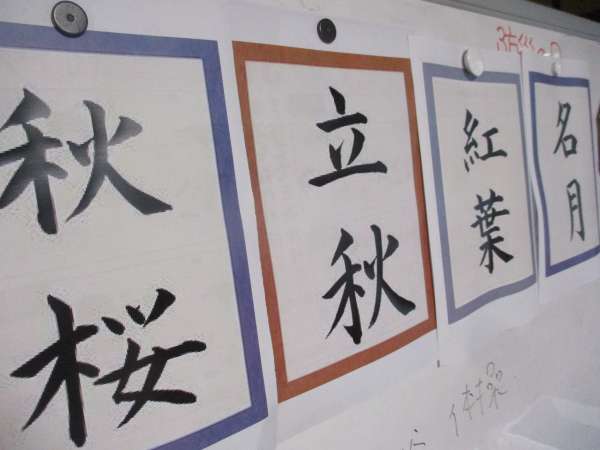 秋桜
立秋
紅葉
名月
体操